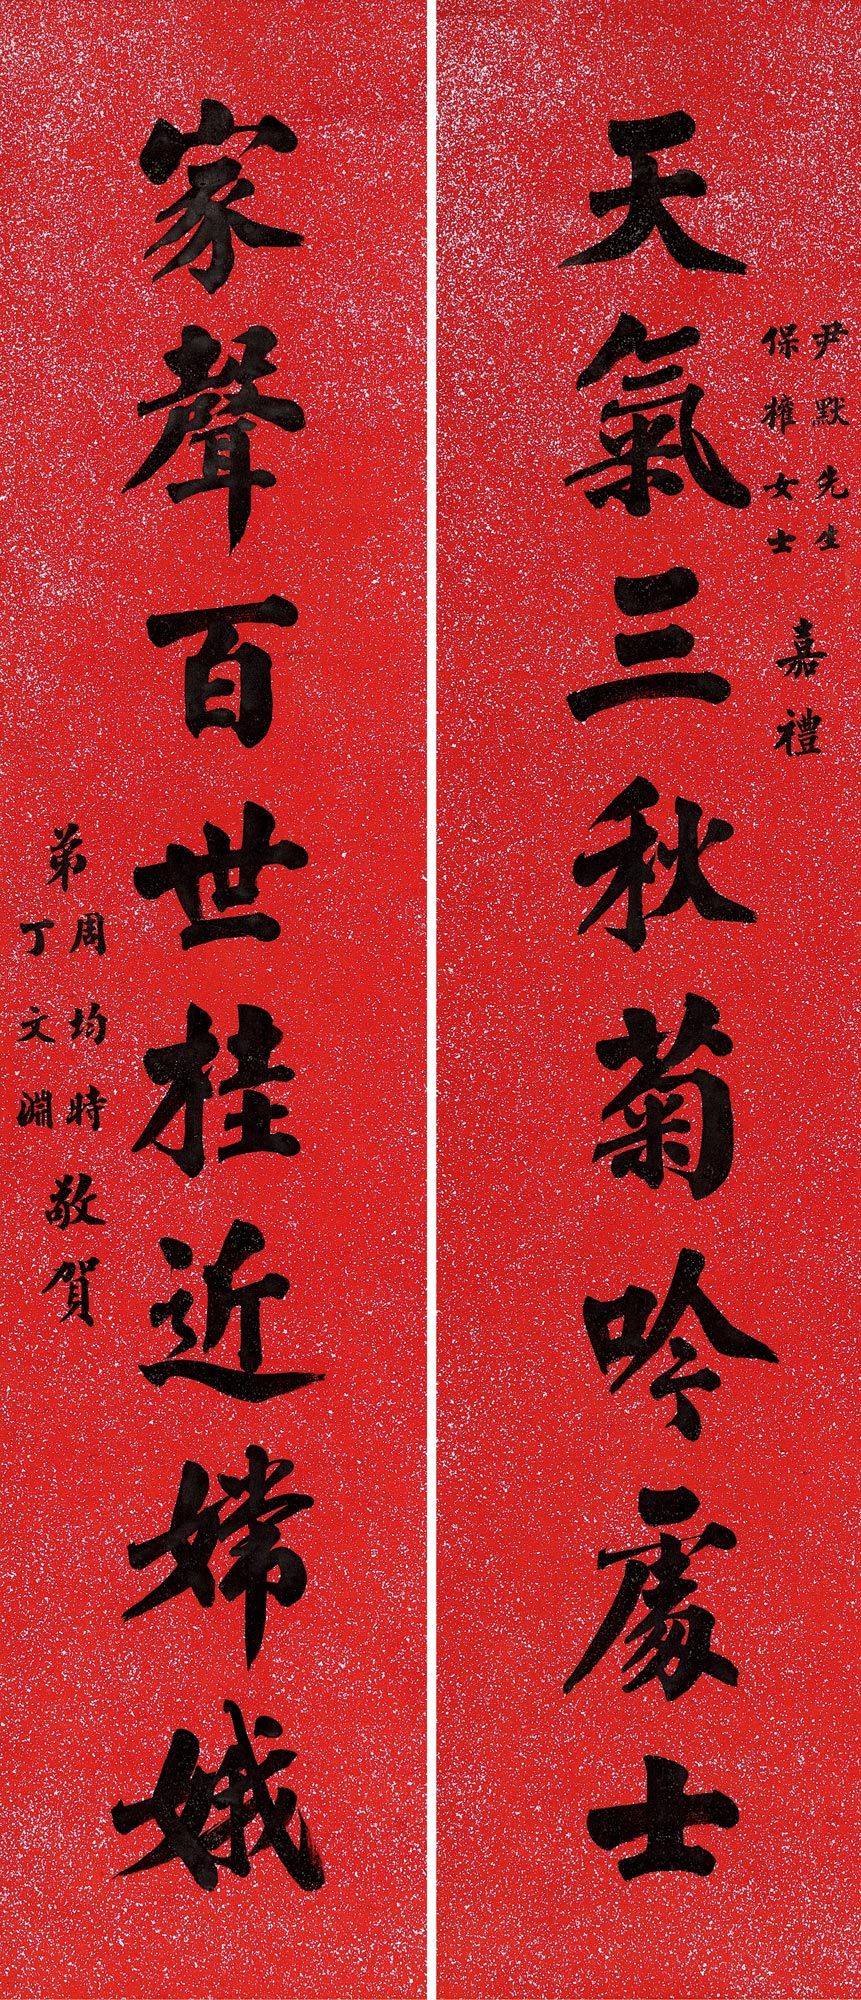 尹默先生
保權女士
嘉禮
天氣三秋菊吟處士
家聲百世桂近嫦娥
弟
周均時
丁文淵
敬賀